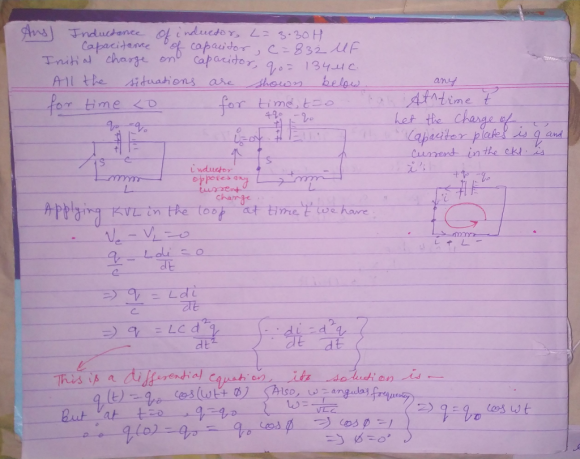 Ans) Inductance of inductor, L = 3.30H
Capacitance of capacitor, C = 832 μF
Initial charge on capacitor, q₀ = 134μC
All the situations are shown below
for time < 0
q₀ -q₀
S C
L
for time, t=0
+q₀ -q₀
i=0
S
L
inductor
opposes any
current
change
any
At^time 't'
Let the charge of
capacitor plates is 'q' and
current in the ckt. is
'i'.
+q -q
i
i + L -
Applying KVL in the loop at time 't' we have
V_c - V_L = 0
q/c - L di/dt = 0
⇒ q/c = L di/dt
⇒ q = LC d²q/dt² {∵ di/dt = d²q/dt²}
This is a differential equation, its solution is -
q(t) = q₀ cos(ωt + φ) {Also, ω = angular frequency
ω = 1/√LC}
But at t=0, q=q₀
∴ q(0) = q₀ = q₀ cosφ ⇒ cosφ = 1
⇒ φ = 0°
⇒ q = q₀ cos ωt